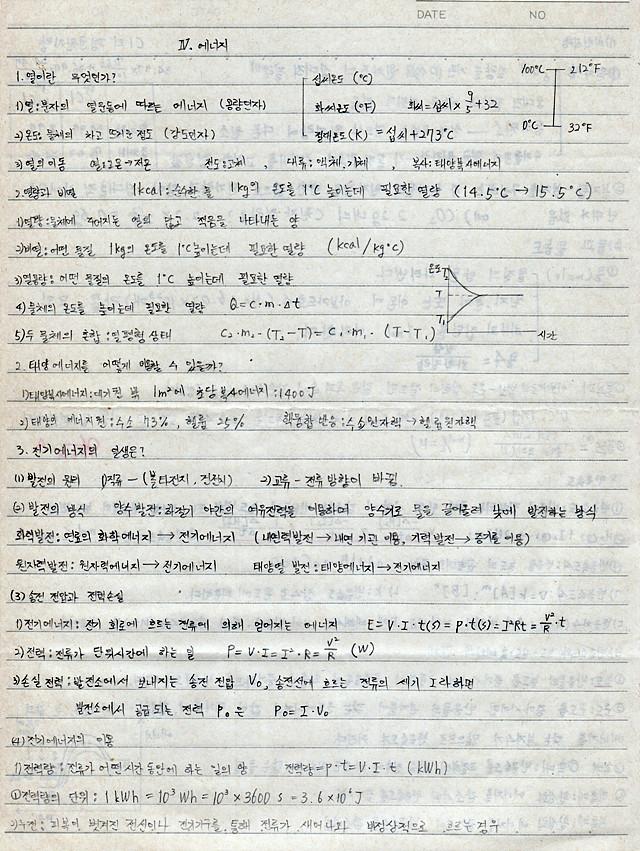 DATE NO
Ⅳ. 에너지
1. 열이란 무엇인가?
섭씨온도 (°C)
100°C 212°F
1)열:분자의 열운동에 따르는 에너지 (용량인자)
화씨온도 (°F) 화씨=섭씨×9/5+32
2)온도: 물체의 차고 뜨거운 정도 (강도인자)
절대온도(K) =섭씨+273°C
0°C 32°F
3)열의 이동 열:고온→저온 전도:고체, 대류:액체,기체, 복사:태양복사에너지
2.열량과 비열 1kcal:순수한 물 1kg의 온도를 1°C 높이는데 필요한 열량 (14.5°C → 15.5°C)
1)열량:물체에 주어지는 열의 많고 적음을 나타내는 양
2)비열:어떤 물질 1kg의 온도를 1°C높이는데 필요한 열량 (kcal/kg°C)
3)열용량:어떤 물질의 온도를 1°C 높이는데 필요한 열량
온도 T₂
T
T₁
시간
4)물체의 온도를 높이는데 필요한 열량 Q=c·m·Δt
5)두 물체의 혼합:열평형 상태 C₂·m₂·(T₂-T)=C₁·m₁·(T-T₁)
2.태양에너지를 어떻게 이용할 수 있을까?
1)태양복사에너지:대기권 밖 1m²에 초당복사에너지:1400J
2)태양의 에너지원:수소 73%, 헬륨 25% 핵융합 반응:수소원자핵→헬륨원자핵
3.전기에너지의 일생은?
(1)발전의 원리 1)직류-(볼타전지, 건전지) 2)교류-전류방향이 바뀜
(2)발전의 방식 양수발전:화전기 야간의 여유전력을 이용하여 양수기로 물을 끌어올려 낮에 발전하는 방식
화력발전:연료의 화학에너지→전기에너지 (내연력발전→내연 기관 이용, 기력발전→증기를 이용)
원자력발전:원자력에너지→전기에너지 태양열 발전:태양에너지→전기에너지
(3)송전 전압과 전력손실
1)전기에너지:전기 회로에 흐르는 전류에 의해 얻어지는 에너지 E=V·I·t(s)=P·t(s)=I²Rt=V²/R·t
2)전력:전류가 단위시간에 하는 일 P=V·I=I²·R=V²/R (W)
3)손실 전력:발전소에서 보내지는 송전 전압 V₀, 송전선에 흐르는 전류의 세기 I라하면
발전소에서 공급되는 전력 P₀은 P₀=I·V₀
(4)전기에너지의 이용
1)전력량:전류가 어떤시간동안에 하는 일의 양 전력량=P·t=V·I·t (kWh)
①전력량의 단위:1kWh=10³Wh=10³×3600 s=3.6×10⁶J
2)누전:피복이 벗겨진 전선이나 전기기구를 통해 전류가 새어나와 비정상적으로 흐르는 경우